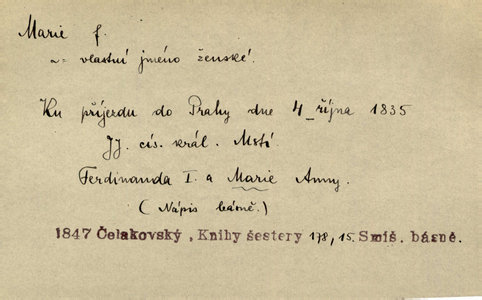 Marie f.
~= vlastní jméno ženské.
Ku příjezdu do Prahy dne 4_října 1835
JJ. cís. král. Mstí
Ferdinanda I. a Marie Anny.
(Nápis básně.)
1847 Čelakovský, Knihy šestery 178, 15. Smíš. básně.